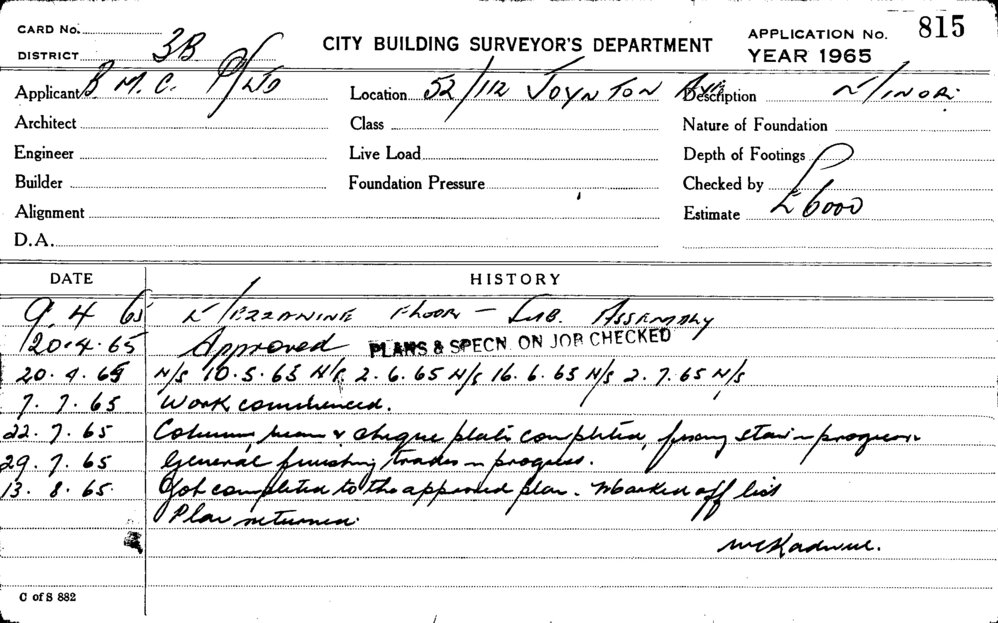 CARD No.
DISTRICT 3B
CITY BUILDING SURVEYOR'S DEPARTMENT
APPLICATION No. 815
YEAR 1965
Applicant B. M. C. P/LTD
Location 52/112 JOYNTON AVE
Description MINOR.
Architect
Class
Nature of Foundation
Engineer
Live Load
Depth of Footings
Builder
Foundation Pressure
Checked by
Alignment
Estimate £6000
D.A.
DATE HISTORY
9. 4 65 MEZZANINE FLOOR – SUB. ASSEMBLY
20.4.65 Approved PLANS & SPECN. ON JOB CHECKED
20.4.65 N/S 10.5.65 N/S 2.6.65 N/S 16.6.65 N/S 2.7.65 N/S
7.7.65 Work commenced.
22.7.65 Column, beam & cheque plate completed, stair in progress.
29.7.65 General finishing trades in progress.
13.8.65 Job completed to the approved plan. Marked off list
Plan returned.
C of S 882